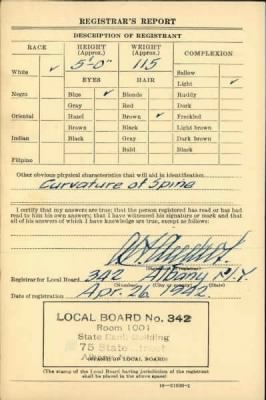 REGISTRAR'S REPORT
DESCRIPTION OF REGISTRANT
RACE HEIGHT (Approx.) WEIGHT (Approx.) COMPLEXION
5'-0" 115
White ✓ Sallow
EYES HAIR Light ✓
Negro Blue ✓ Blonde Ruddy
Gray Red Dark
Oriental Hazel Brown ✓ Freckled
Brown Black Light brown
Indian Black Gray Dark brown
Bald Black
Filipino
Other obvious physical characteristics that will aid in identification
Curvature of Spine
I certify that my answers are true; that the person registered has read or has had
read to him his own answers; that I have witnessed his signature or mark and that
all of his answers of which I have knowledge are true, except as follows:
Registrar for Local Board 342 Albany N.Y.
(Number) (City or county) (State)
Date of registration Apr. 26, 1942
LOCAL BOARD No. 342
Room 1001
State Bank Building
75 State Street
Albany
(STAMP OF LOCAL BOARD)
(The stamp of the Local Board having jurisdiction of the registrant
shall be placed in the above space)